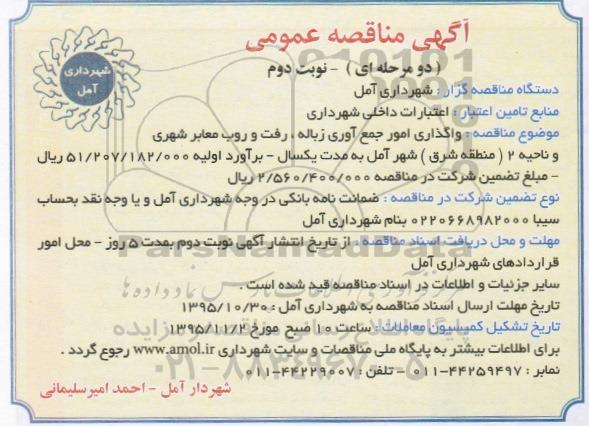 آگهی مناقصه عمومی
( دو مرحله ای ) - نوبت دوم
شهرداری
آمل
دستگاه مناقصه گزار : شهرداری آمل
منابع تامین اعتبار : اعتبارات داخلی شهرداری
موضوع مناقصه : واگذاری امور جمع آوری زباله ، رفت و روب معابر شهری
و ناحیه ۲ ( منطقه شرق ) شهر آمل به مدت یکسال - برآورد اولیه ۵۱/۲۰۷/۱۸۲/۰۰۰ ریال
- مبلغ تضمین شرکت در مناقصه ۲/۵۶۰/۴۰۰/۰۰۰ ریال
نوع تضمین شرکت در مناقصه : ضمانت نامه بانکی در وجه شهرداری آمل و یا وجه نقد بحساب
سیبا ۰۲۲۰۶۶۸۹۸۲۰۰۰ بنام شهرداری آمل
مهلت و محل دریافت اسناد مناقصه : از تاریخ انتشار آگهی نوبت دوم بمدت ۵ روز - محل امور
قراردادهای شهرداری آمل
سایر جزئیات و اطلاعات در اسناد مناقصه قید شده است .
تاریخ مهلت ارسال اسناد مناقصه به شهرداری آمل : ۱۳۹۵/۱۰/۳۰
تاریخ تشکیل کمیسیون معاملات : ساعت ۱۰ صبح مورخ ۱۳۹۵/۱۱/۲
برای اطلاعات بیشتر به پایگاه ملی مناقصات و سایت شهرداری www.amol.ir رجوع گردد .
نمابر : ۴۴۲۵۹۴۹۷-۰۱۱ - تلفن : ۴۴۲۲۹۰۰۷-۰۱۱
شهردار آمل - احمد امیرسلیمانی
ParsNamadData
۰۲۱-۸۸۳۴۹۶۷۰-۵